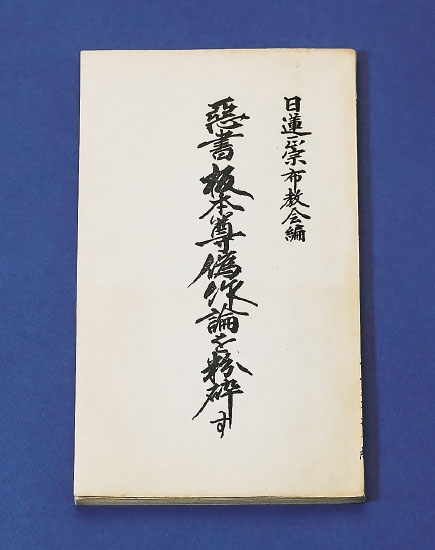 日蓮正宗布教会編
惡書板本尊偽作論を粉砕す